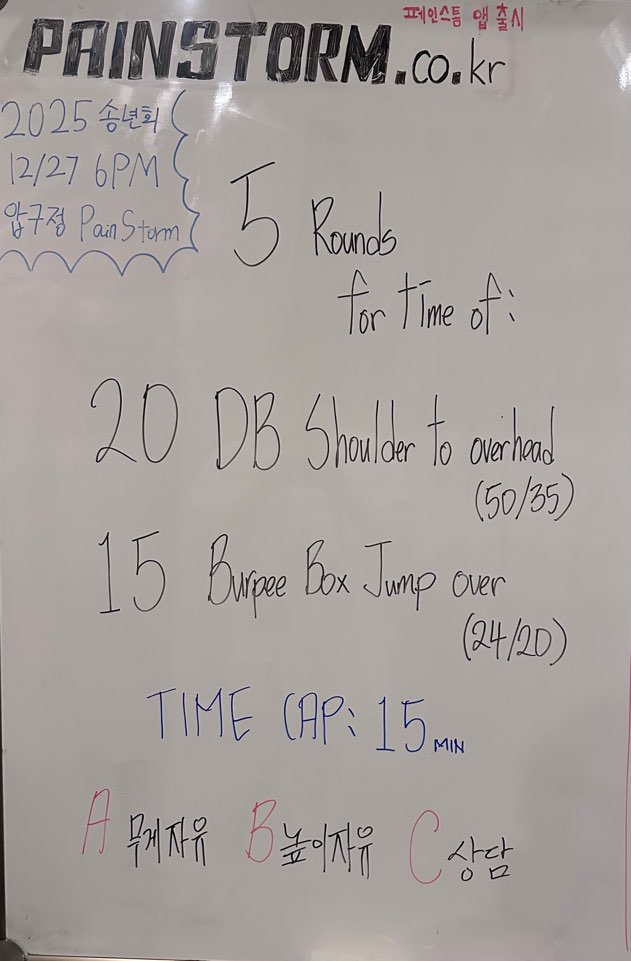 페인스톰 앱 출시
PAINSTORM.co.kr
2025 송년회
12/27 6PM
압구정 PainStorm
5 Rounds
for Time of:
20 DB Shoulder to overhead
(50/35)
15 Burpee Box Jump over
(24/20)
TIME CAP: 15 MIN
A 무게자유 B 높이자유 C 상담